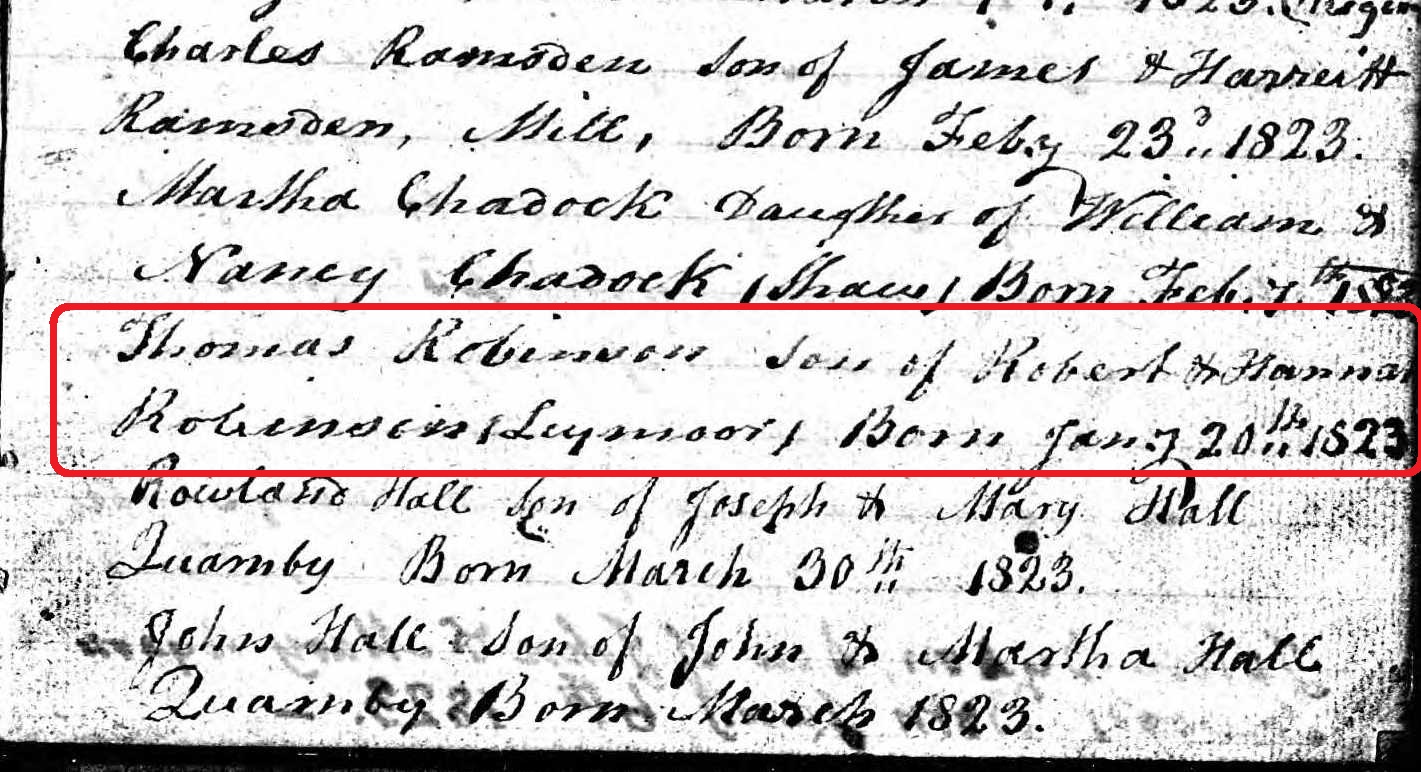 1823.
Charles Ramsden Son of James & Harreitt
Ramsden, Mill, Born Feby 23d,, 1823.
Martha Chadock Daughter of William &
Nancy Chadock (Shaw) Born Feb. 7th
Thomas Robinson Son of Robert & Hannah
Robinson (Leymoor) Born Jany 20th 1823
Rowland Hall Son of Joseph & Mary Hall
Quarmby Born March 30th 1823.
John Hall Son of John & Martha Hall
Quarmby Born March 1823.